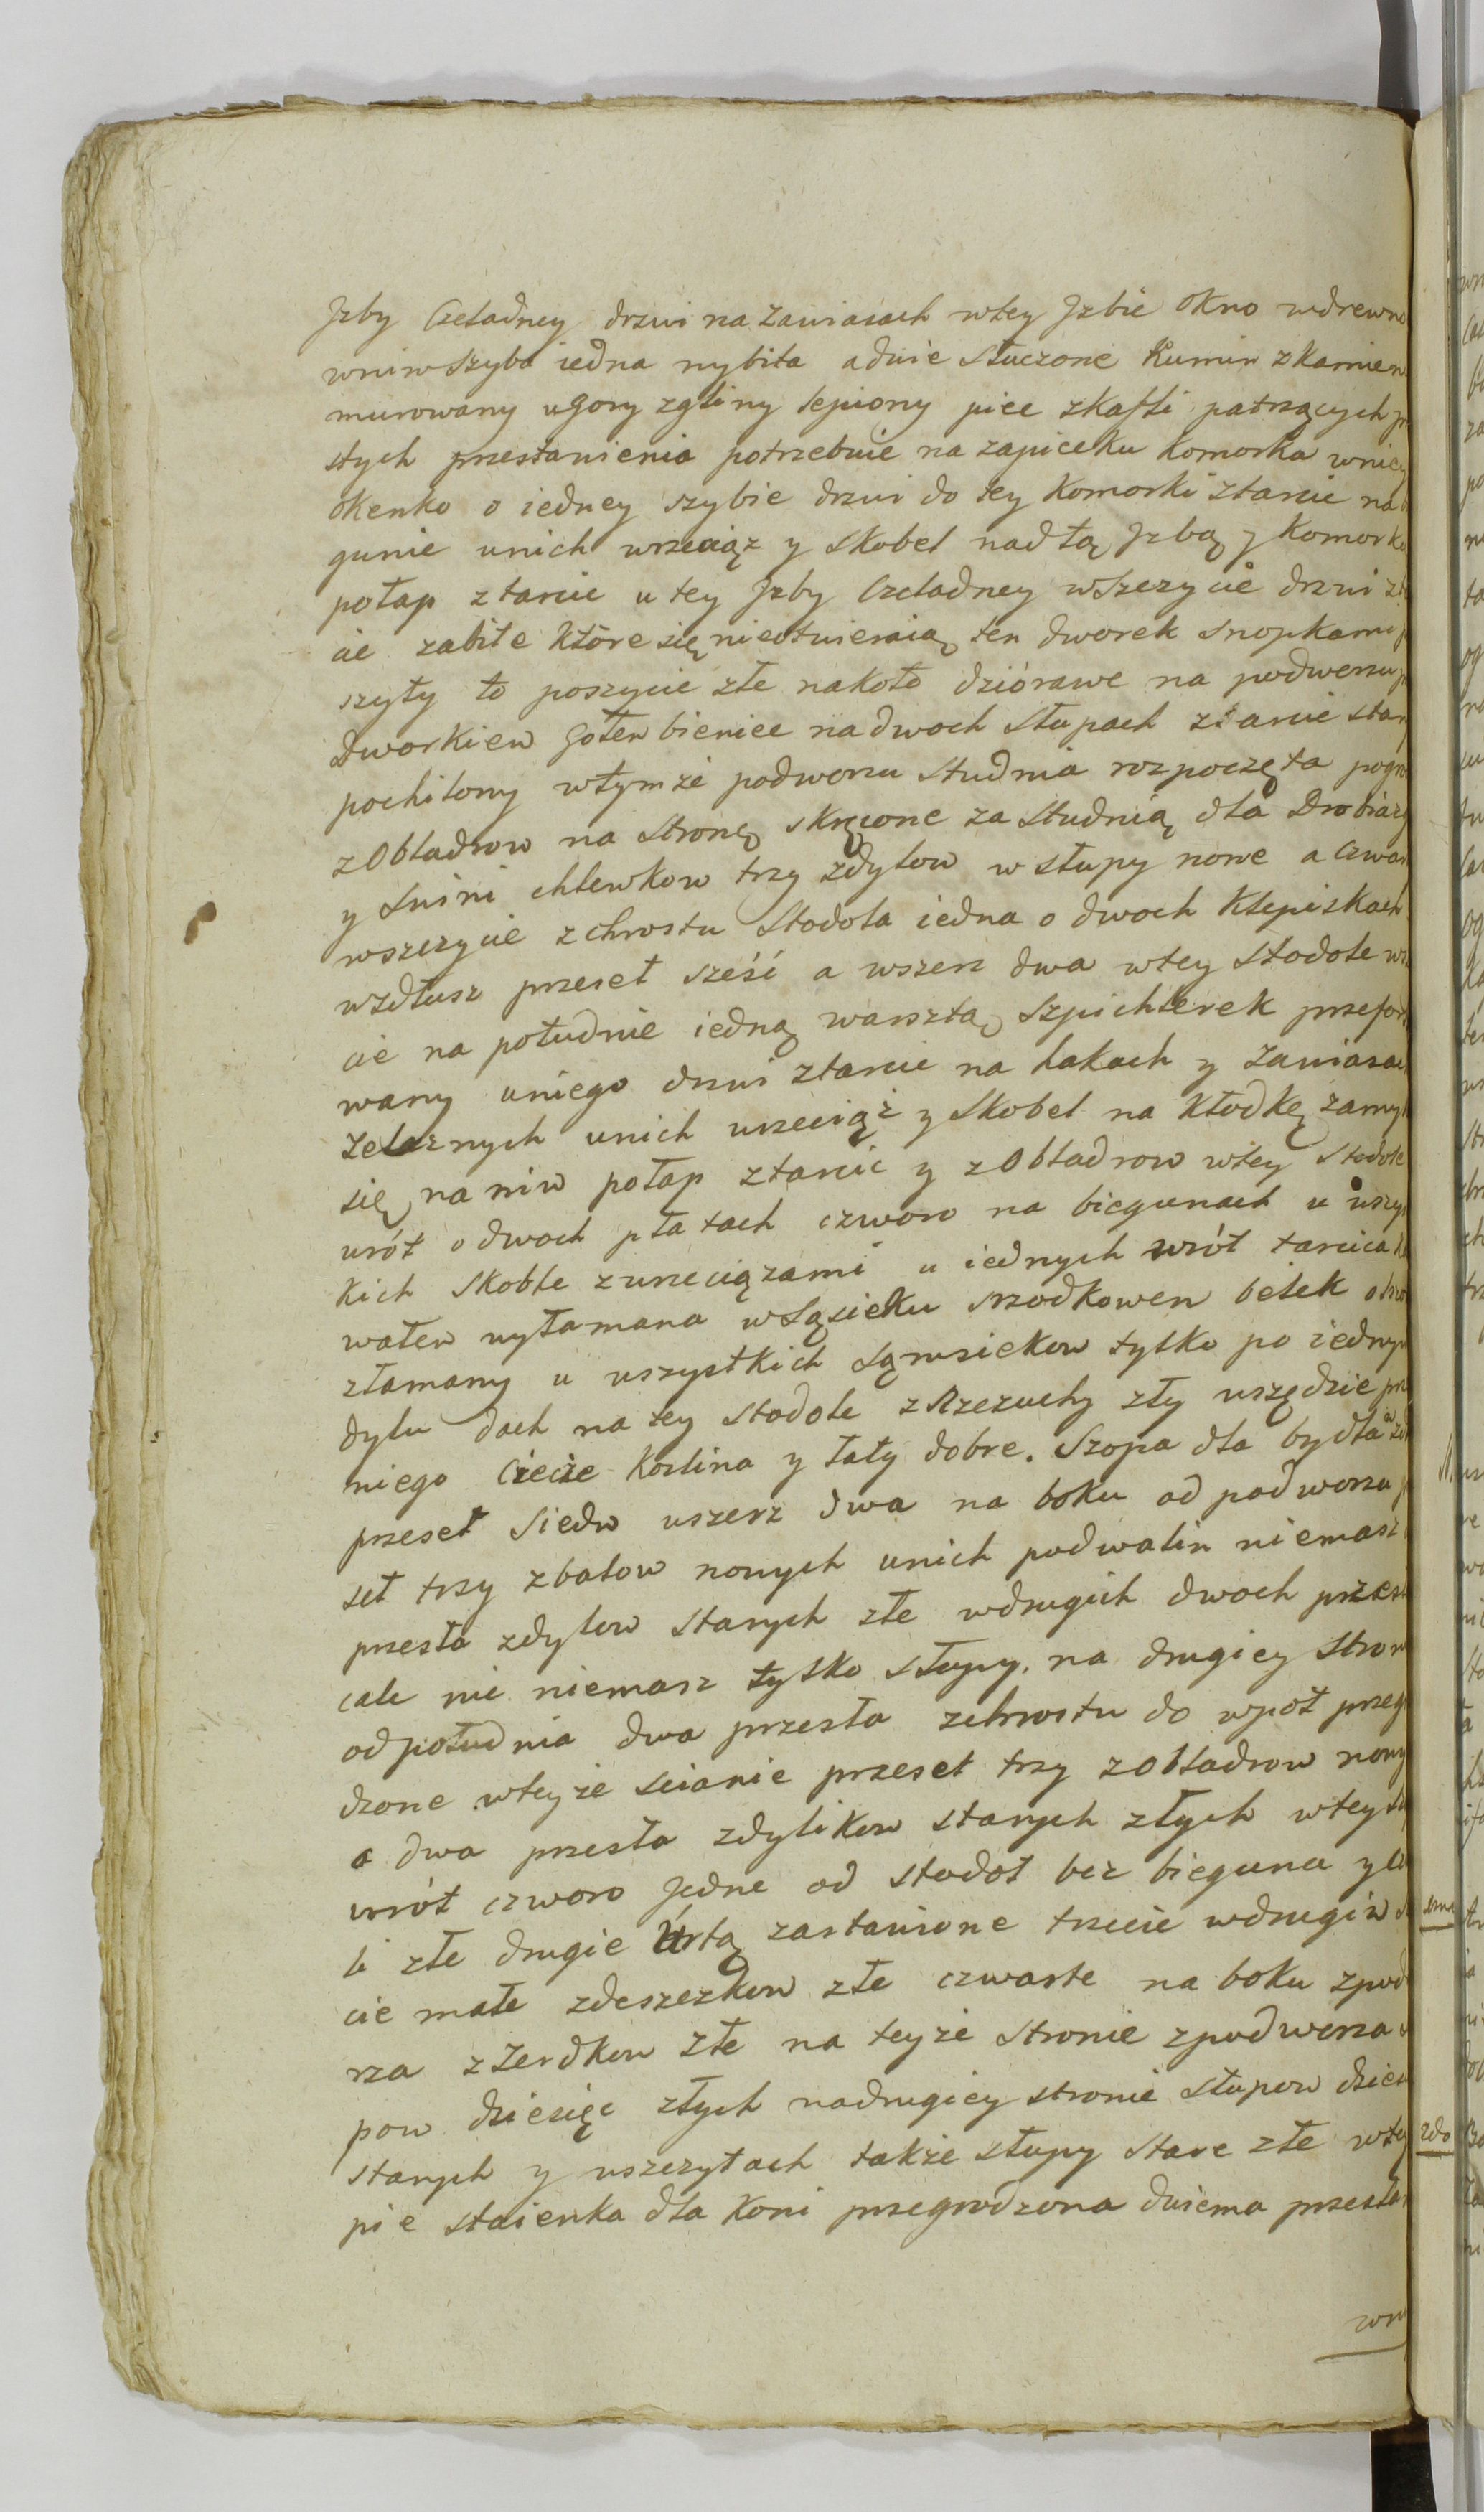 Jzby Czeladney drzwi na Zawiasach wtey Jzbie okno wdrewn
wniw szyba iedna wybita a dwie stuczone Kumin zkamien
murowany ugory zgliny lepiony piec zkafli patrzących
stych przestawienia potrzebuie na zapiecku Komorka wniey
okenko o iedney szybie drzwi do tey Komorki ztarcic na
gunie unich wrzeciąz y skobel nad tą Jzbą y Komork
połap z tarcic u tey Jzby Czeladney wszczycie drzwi z
cic zabite które się nieotwieraią ten dworek snopkami
szyty to poszycie złe nakoło dziórawe na podworzu
Dworkiew Gołenbieniec nadwoch Słupach ztarcic star
pochilony wtymże podworzu studnia rozpoczęta pogro
zObladrow na stronę skręcone za studnią dla Drobiazg
y swini chlewkow trzy zdylow w słupy nowe a czwar
wszczycie zchrostu Stodola iedna o dwoch Klepiskach
wzdłusz przeseł sześć a wszerz dwa wtey Stodole
cie na południe iedną warsztą Szpichlerek przefor
wany uniego drzwi ztarcic na hakach y Zawiasac
żelaznych unich wrzeciąż y skobel na Kłodkę zamy
się na niw połap ztarcic y zObladrow wtey Stodole
wrót o dwoch płatach czworo na biegunach u wszy
kich skoble zwrzeciązami u iednych wrót tarcica
wałew wyłamana wSąsieku srzodkowem belek
złamany u wszystkich Sąwsiekow tylko po iednym
dylu dach na tey stodole zRzezuchy zły wszędzie
niego Ciecie Kozlina y łaty dobre. Szopa dla bydła
przeseł siedw wszerz dwa na boku od podworza
seł trzy zbalow nowych unich podwalin niemasz
przesła zdylow starych złe wdrugich dwoch przes
cale nic niemasz tylko słupy. na drugiey stron
odpołudnia dwa przesła zchrostu do wpoł przeg
dzone wteyże scianie przeseł trzy zObladrow nowy
a dwa przesła zdylikow starych złych wtey
wrót czworo Jedne od stodoł bez bieguna y
li złe drugie Urtą zastawione trzecie wdrugiw
cie małe zdeszczkow złe czwarte na boku zpod
rza zżerdkow złe na teyże stronie zpodworza
pow dziesięc złych nadrugiey stronie słupow dzies
starych y wszczytach także słupy stare złe wtey
pie staienka dla Koni przegrodzona dwiema przesła